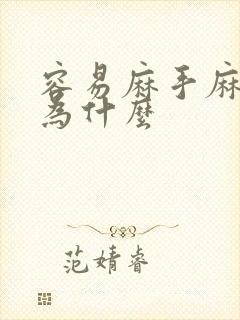 容易麻手麻
為什麼
范婧睿